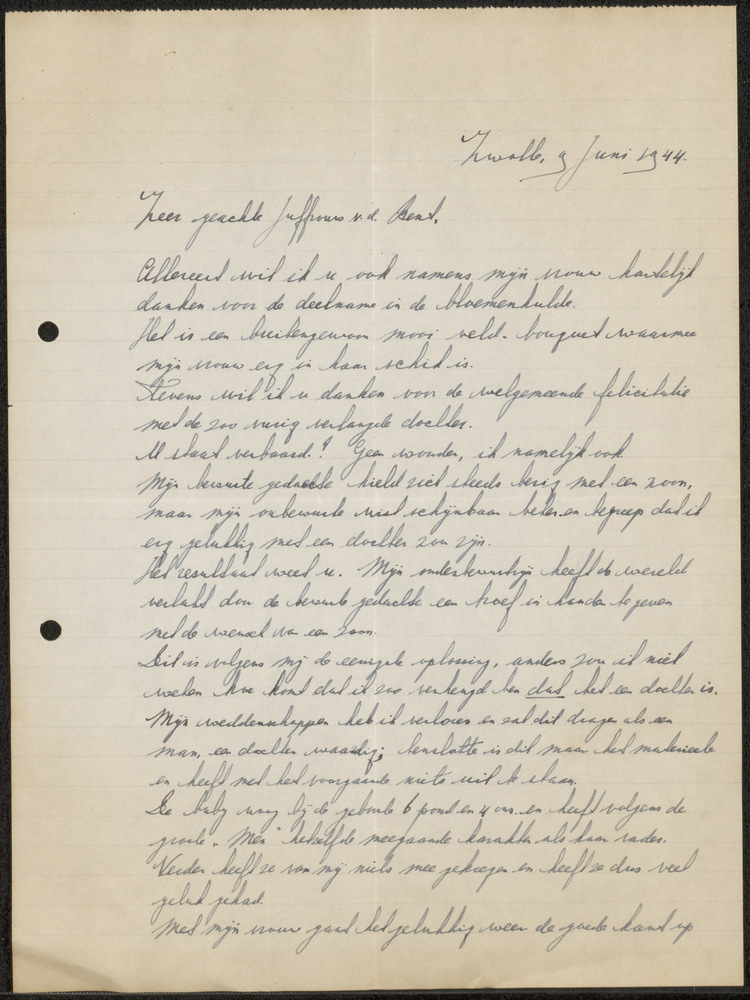 Zwolle, 9 Juni 1944.
Zeer geachte Juffrouw v.d. Bent.
Allereerst wil ik u ook namens mijn vrouw hartelijk
danken voor de deelname in de bloemenhulde.
Het is een buitengewoon mooi veld-bouquet waarmee
mijn vrouw erg in haar schik is.
Tevens wil ik u danken voor de welgemeende felicitatie
met de zoo vurig verlangde dochter.
U staat verbaasd.? Geen wonder, ik namelijk ook.
Mijn bewuste gedachte hield zich steeds bezig met een zoon,
maar mijn onbewuste wist schijnbaar beter en begreep dat ik
erg gelukkig met een dochter zou zijn.
Het resultaat weet u. Mijn onderbewustzijn heeft de wereld
verlakt door de bewuste gedachte een troef in handen te geven
met de wensch van een zoon.
Dit is volgens mij de eenigste oplossing, anders zou ik niet
weten hoe komt dat ik zoo verheugd ben dat het een dochter is.
Mijn weddenschappen heb ik verloren en zal dit dragen als een
man, een dochter waardig; tenslotte is dit maar het materieele
en heeft met het voorgaande niets uit te staan.
De baby woog bij de geboorte 6 pond en 4 ons. en heeft volgens de
groote "Men" hetzelfde meegaande karakter als haar vader.
Verder heeft ze van mij niets mee gekregen en heeft ze dus veel
geluk gehad.
Met mijn vrouw gaat het gelukkig weer de goede kant op